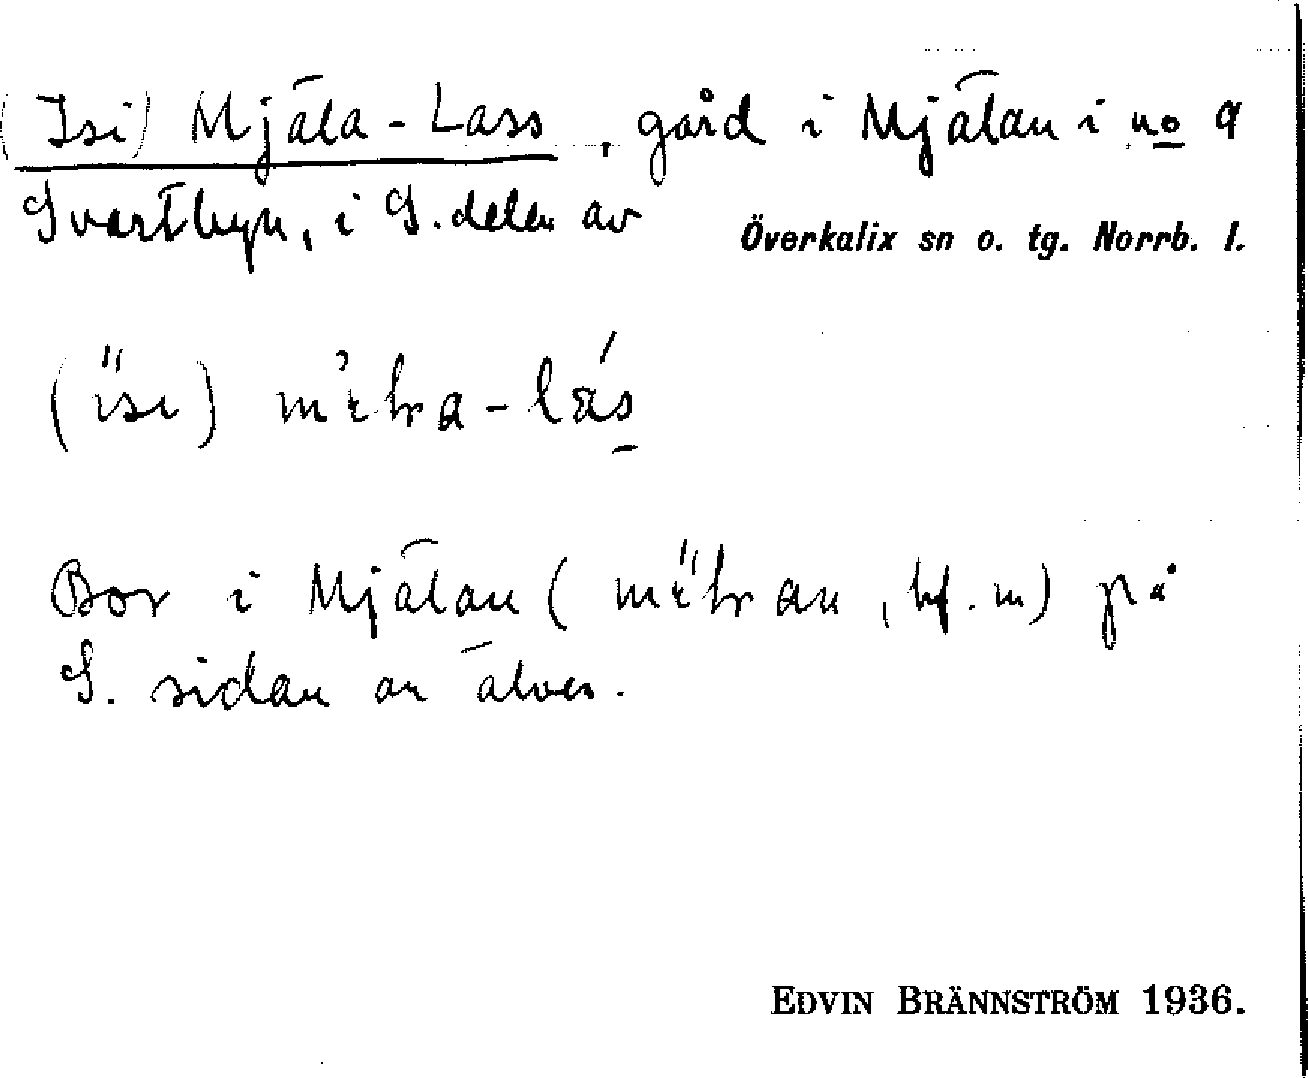 (Isi) Mjäla-Lass, gård i Mjälan i no 9
Svartbyn, i S. delen av Överkalix sn o. tg. Norrb. l.
Bor i Mjälan ( , bf. m) på
S. sidan av älven.
EDVIN BRÄNNSTRÖM 1936.